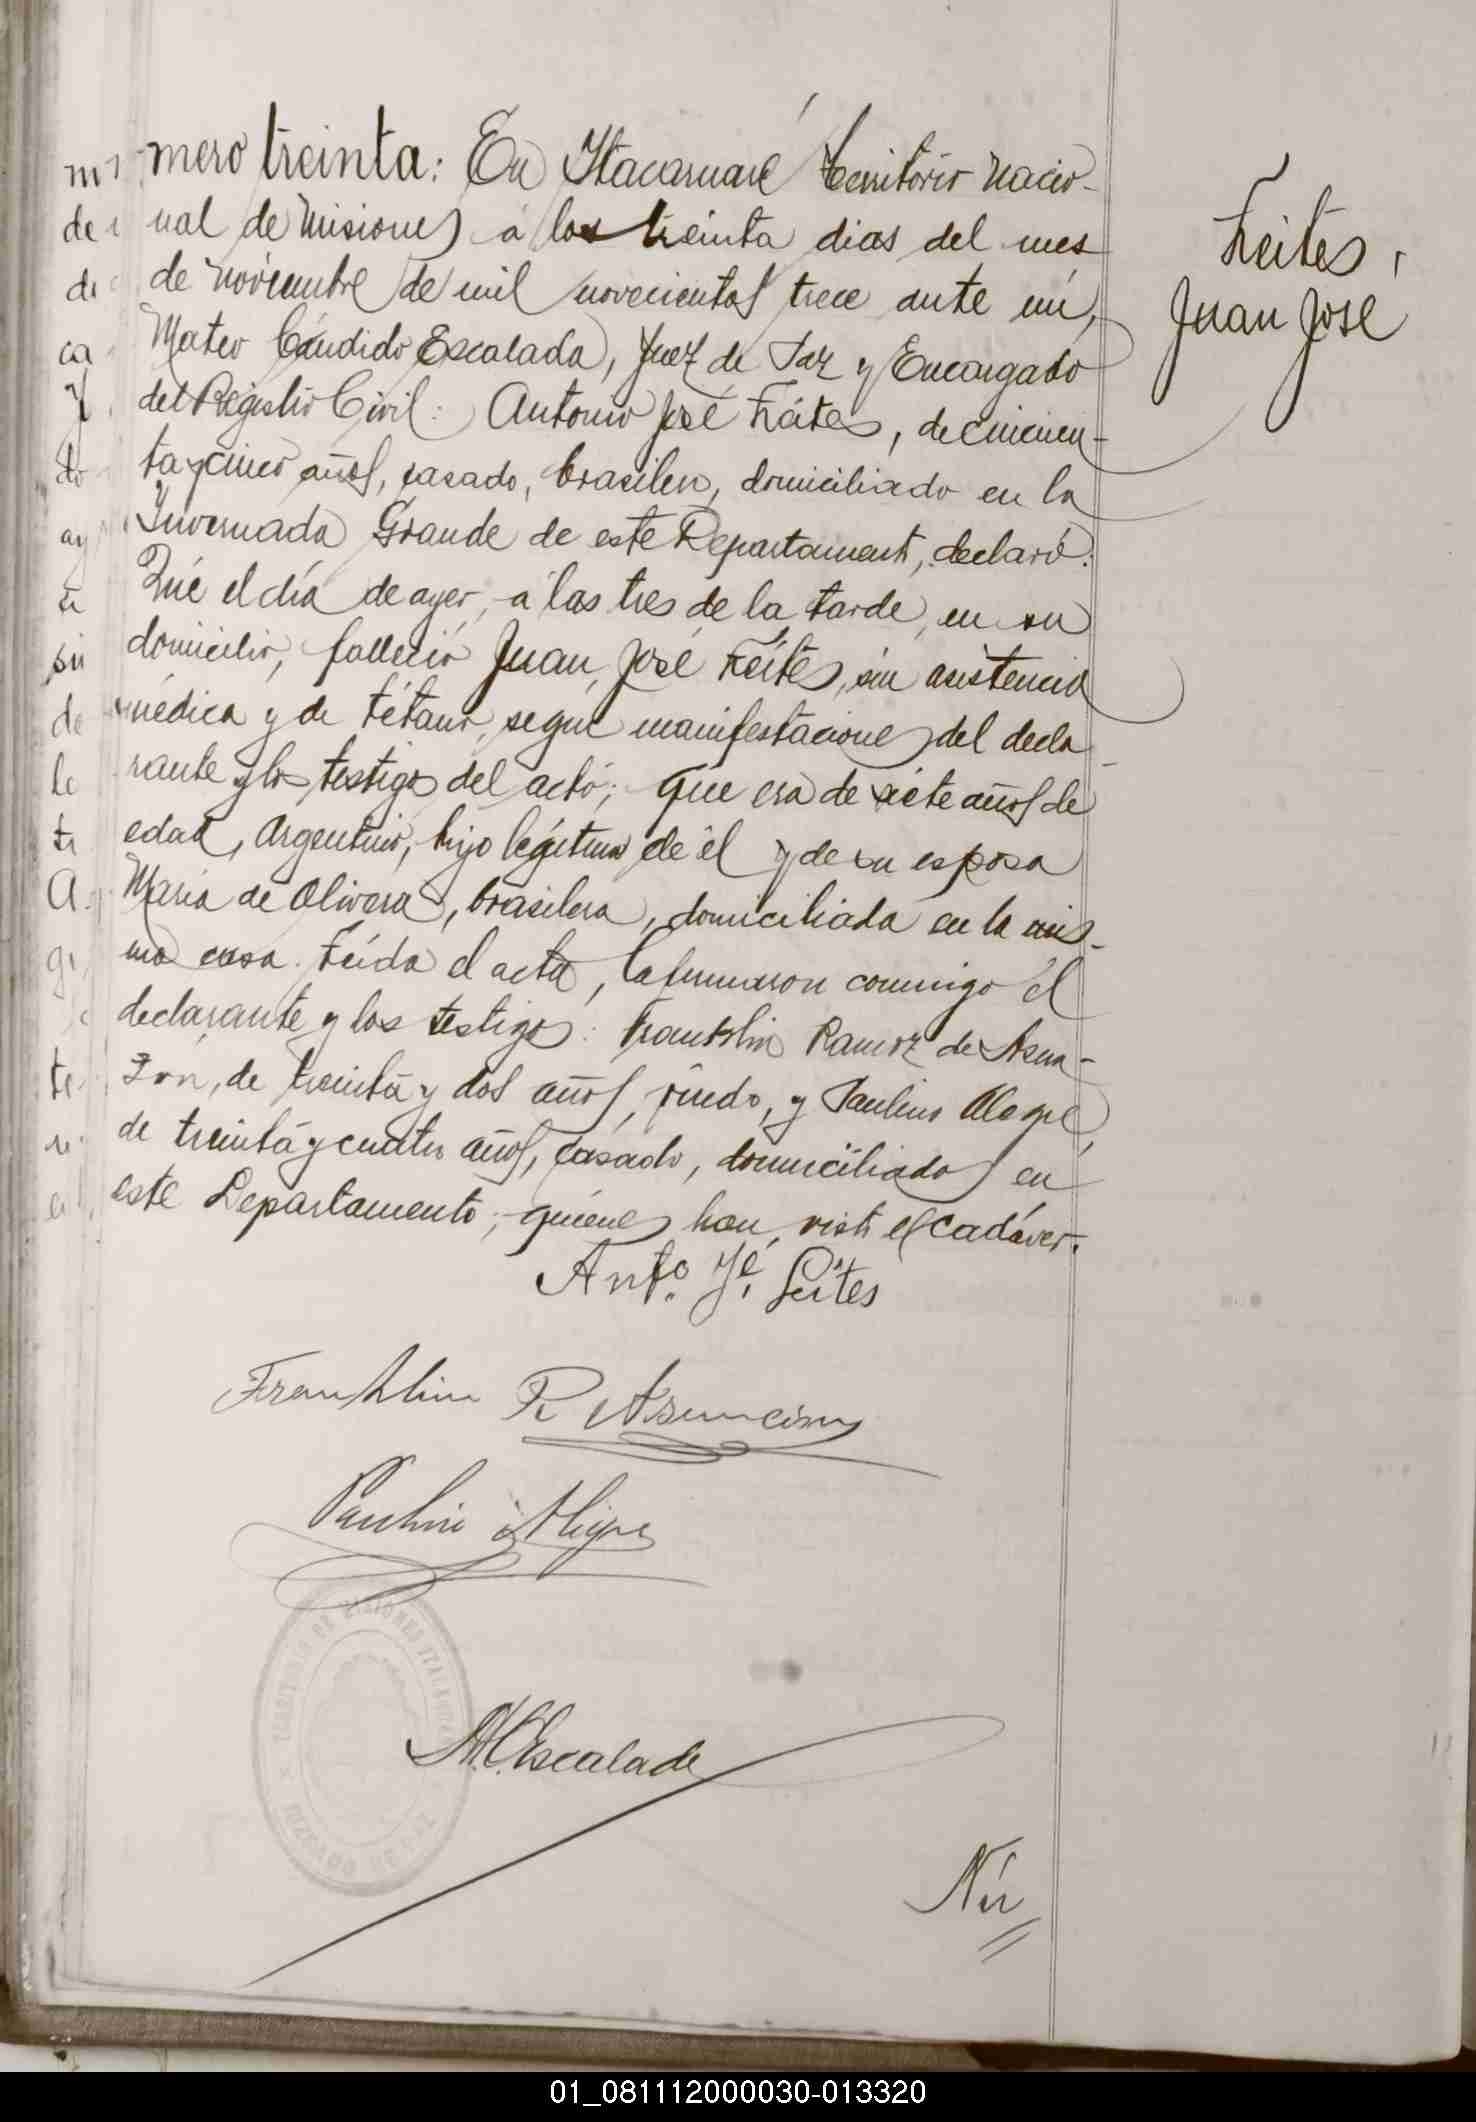 mero treinta: En Itacaruaré territorio nacio-
nal de Misiones á los treinta dias del mes
de noviembre de mil novecientos trece ante mí,
Mateo Cándido Escalada, Juez de Paz y Encargado
del Registro Civil: Antonio José Leites, de cincuen-
ta y cinco años, casado, brasilero, domiciliado en la
Invernada Grande de este Departamento, declaró:
Que el día de ayer, a las tres de la tarde, en su
domicilio, falleció Juan José Leites, sin asistencia
médica y de tétano, según manifestaciones del decla-
rante y los testigos del acto; que era de siete años de
edad, Argentino, hijo legítimo de él y de su esposa
María de Olivera, brasilera, domiciliada en la mis-
ma casa. Leída el acta, la firmaron conmigo el
declarante y los testigos: Franklin Ramoz de Asun-
de treinta y dos años, viudo, y Paulino Alegre,
de treinta y cuatro años, casado, domiciliados en
este Departamento; quienes han visto el cadáver.
Leites,
Juan José
Anto. Jé. Leites
Franklin R Asuncion
Paulino Alegre
TERRITORIO DE MISIONES
M.C. Escalada
Nú
01_081112000030-013320